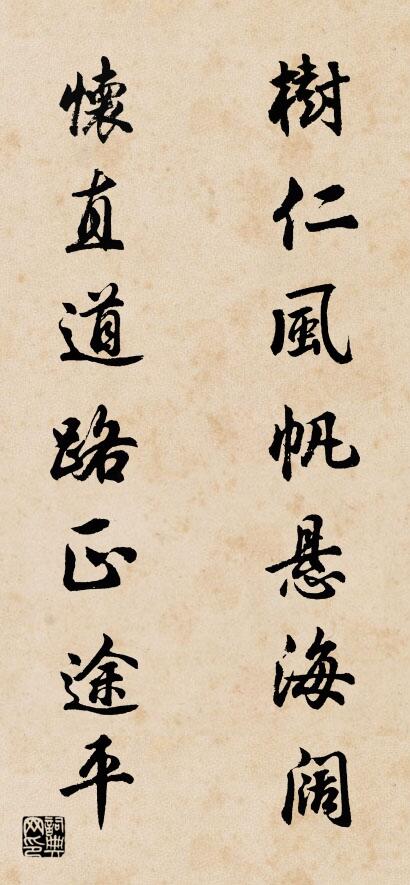 樹仁風帆悬海阔
懷直道路正途平
詞典网印